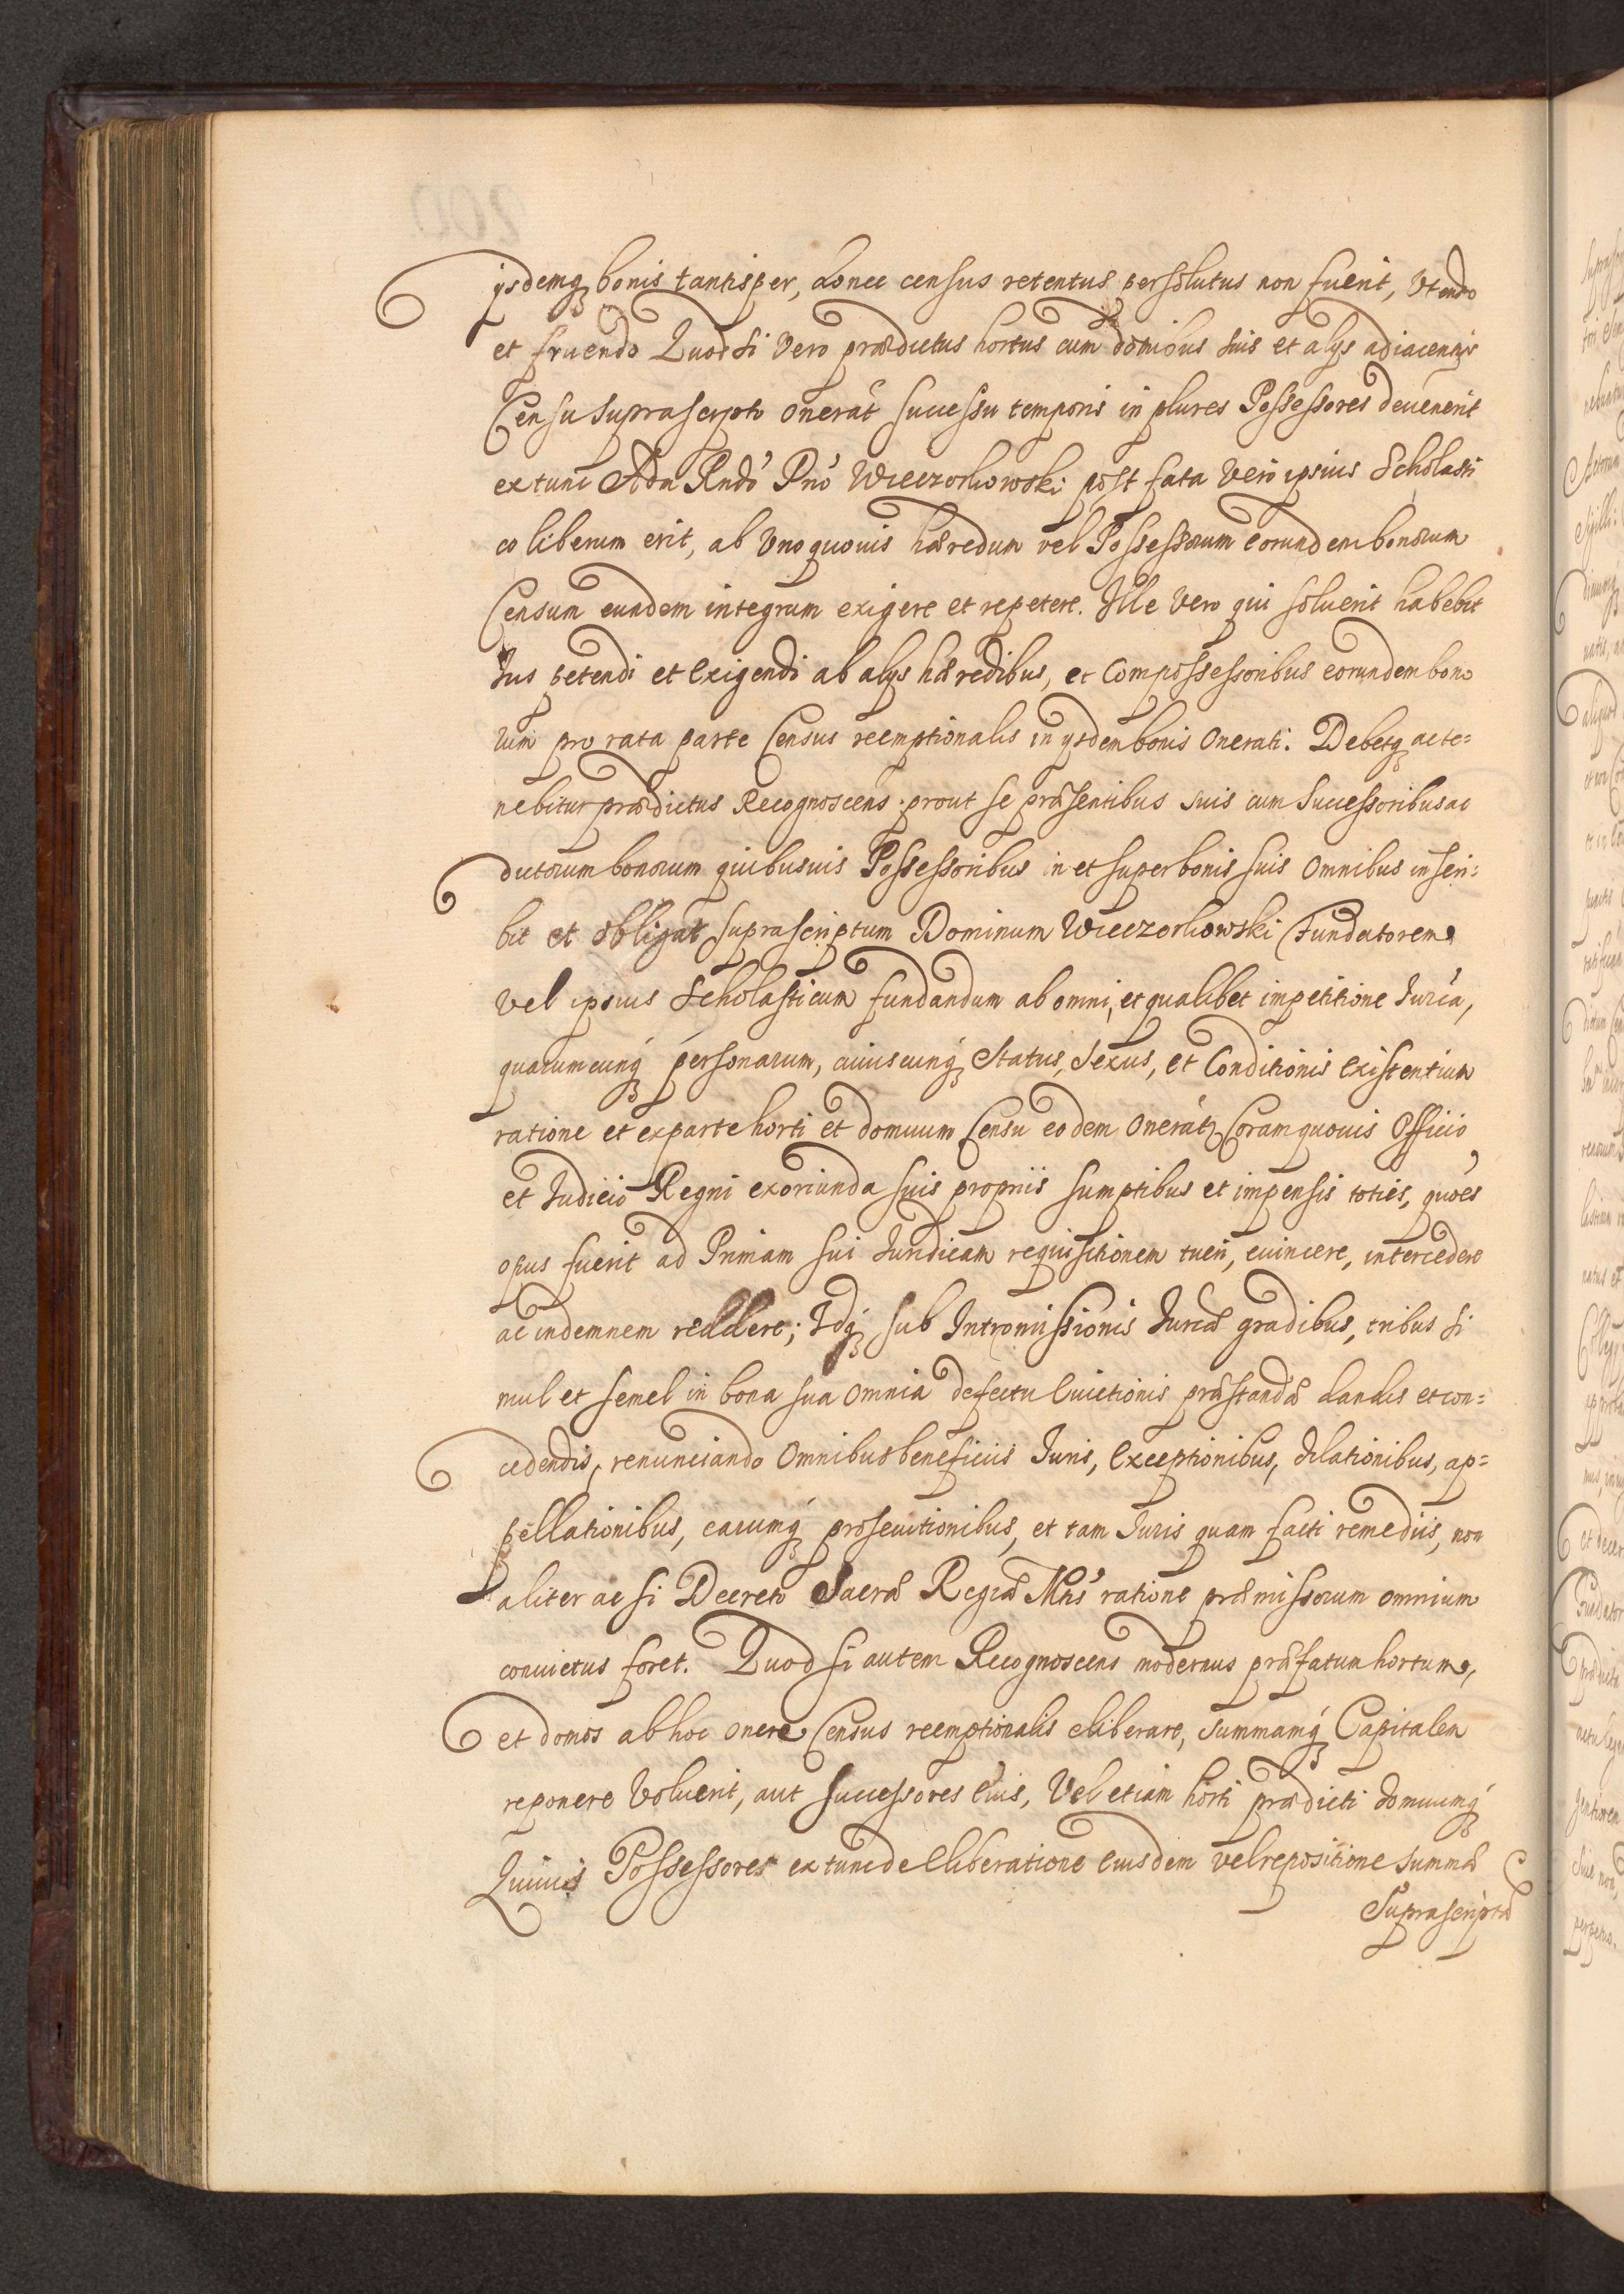 ysdemq bonis tantisper, donec census retentus persolutus non fuerit, Vtendo
et fruendo Quod si Vero prædictus hortus cum domibus suis et alys adiacentys
Censu suprascripto onerat successu temporis in plures Possessores deuenerit
extunc Adm Rndo Dno Wieczorkowski post fata Vero ipsius Scholasti
co liberum erit, ab Vnoquouis hæredum vel Possessorum eorundem bonorum
Censum eundem integrum exigere et repetere. Ille Vero qui soluerit habebit
Ius petendi et exigendi ab alys hæredibus, et Compossessoribus eorundem bono
rum pro rata parte Census reemptionalis in ysdem bonis Onerati. Debetq ac te=
nebitur prædictus Recognoscens prout se præsentibus suis cum Successoribus ac
dictorum bonorum quibusuis Possessoribus in et super bonis suis Omnibus inscri=
bit et obligat suprascriptum Dominum Wieczorkowski Fundatorem
vel ipsius Scholasticum fundandum ab omni, et qualibet impetitione Iurica,
quarumcunq personarum, cuiuscunq Status, Sexus, et Conditionis Existentium
ratione et ex parte horti et domuum Censu eodem Onerat Coram quouis Officio
et Iudicio Regni exoriunda suis propriis sumptibus et impensis toties, quoes
opus fuerit ad Primam sui Iuridicam requisitionem tueri, euincere, intercedere
ac indemnem reddere; Idq sub Intromissionis Iuricæ gradibus, tribus si
mul et semel in bona sua Omnia defectu Euictionis præstandæ dandis et con=
cedendis, renunciando Omnibus beneficiis Iuris, Exceptionibus, dilationibus, ap=
pellationibus, earumq prosecutionibus, et tam Iuris quam facti remediis, non
aliter ac si Decreto Sacræ Regiæ Mtis ratione præmissorum omnium
conuictus foret. Quod si autem Recognoscens modernus præfatum hortum,
et domos ab hoc Onere Census reemptionalis eliberare, summamq Capitalem
reponere Voluerit, aut successores Eius, Vel etiam horti prædicti domuumq
Quiuis Possessores extunc de Eliberatione Eiusdem vel repositione summæ
Suprascriptæ